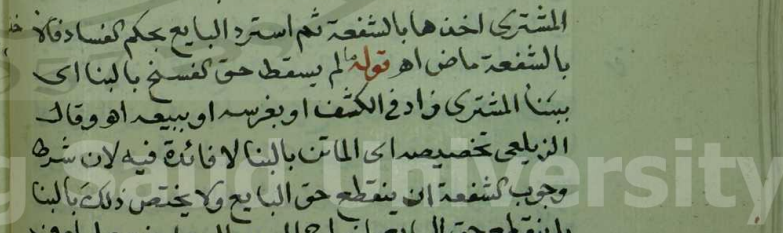 المشترى اخذها بالشفعة ثم استرد البايع بحكم الفساد فالا
بالشفعة ماض اهـ قوله ما لم يسقط حق الفسخ بالبنا اى
ببنأ المشترى زاد فى الكشف او بغرسه او ببيعه اهـ وقال
الزيلعى تخصيصه اى الماتن بالبنا لا فائدة فيه لان شرط
وجوب الشفعة ان ينقطع حق البايع ولا يختص ذلك بالبنا
بل ينقطع حق البايع
g Saud University